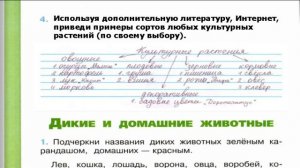 4. Используя дополнительную литературу, Интернет,
приведи примеры сортов любых культурных
растений (по своему выбору).
Культурные растения
овощные плодовые зерновые кормовые
1. огурцы 1. груша 1. пшеница 1. свёкла
2. картофель 2. слива 2. рожь 2. овес
3. лук 3. клевер
4. морковь
декоративные
1. садовые цветы
ДИКИЕ И ДОМАШНИЕ ЖИВОТНЫЕ
1. Подчеркни названия диких животных зелёным ка-
рандашом, домашних — красным.
Лев, кошка, лошадь, ворона, овца, воробей, ко-